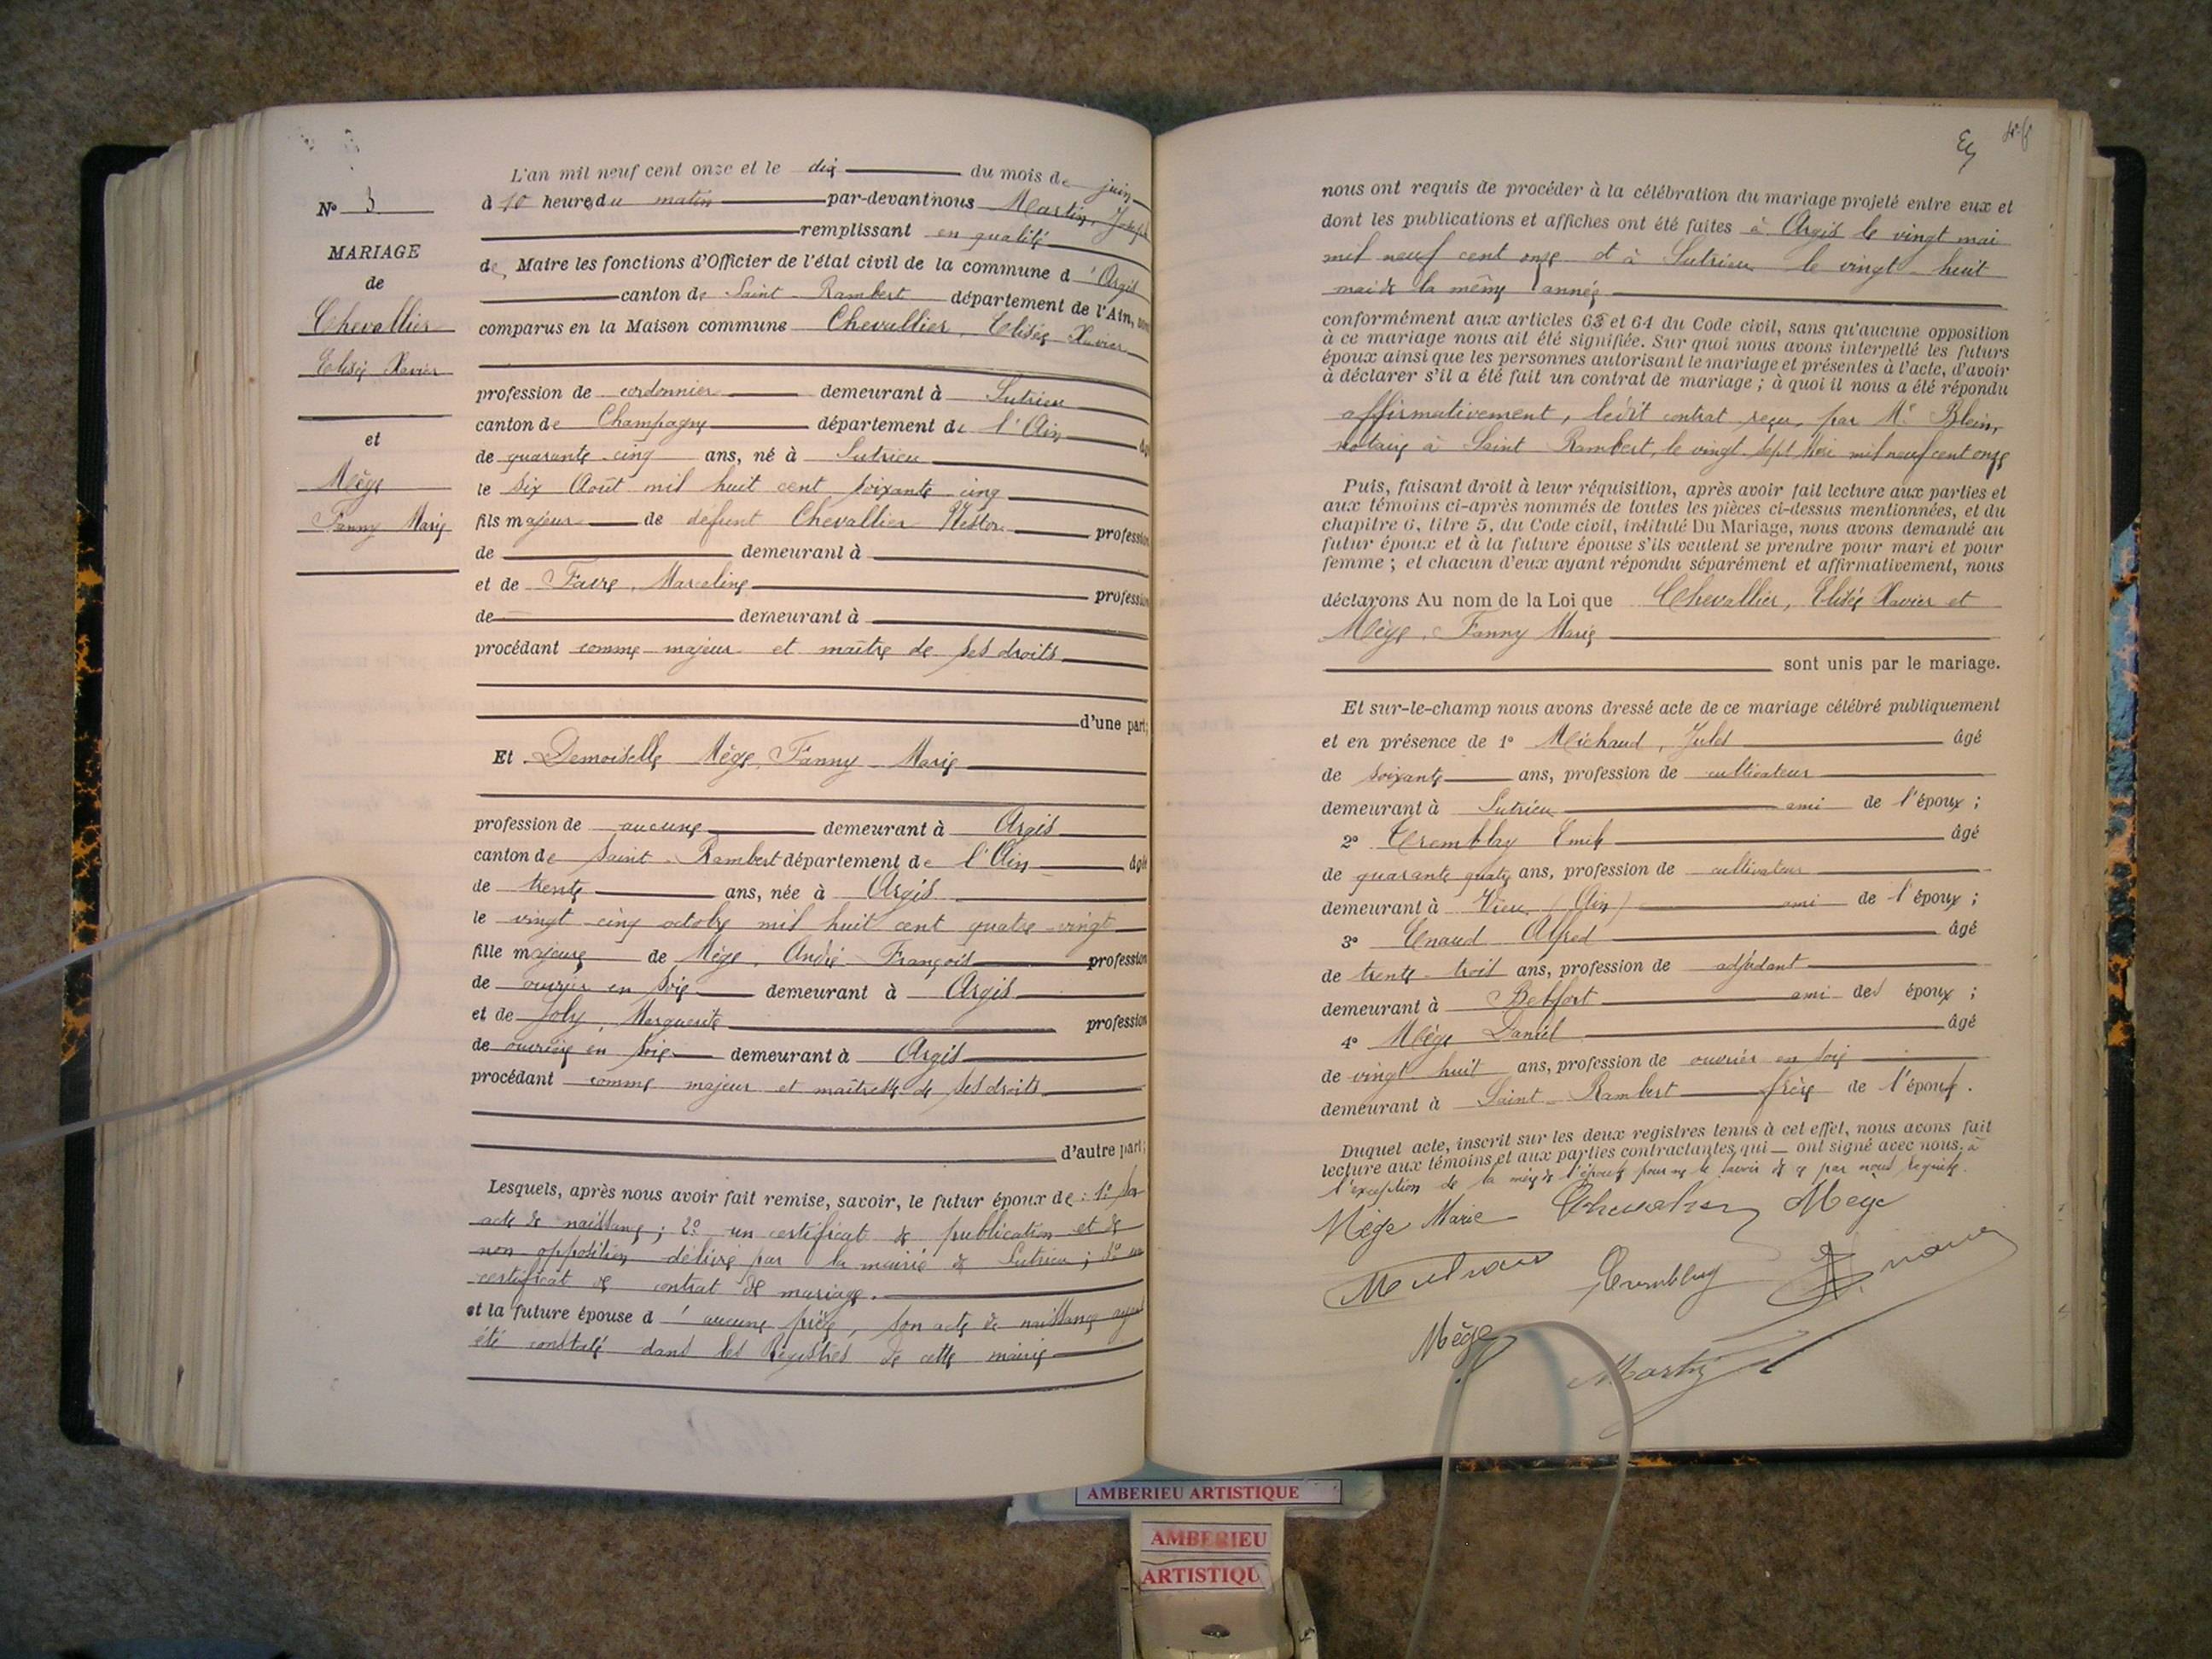 N° 3
MARIAGE
de
Chevallier
Elisée Xavier
et
Mège
Fanny Marie
L'an mil neuf cent onze et le dix du mois de juin
à 10 heures du matin par-devant nous Martin, Joseph
remplissant en qualité
de Maire les fonctions d'Officier de l'état civil de la commune d'Argis
canton de Saint-Rambert département de l'Ain, sont
comparus en la Maison commune Chevallier, Elisée Xavier
profession de cordonnier demeurant à Sutrieu
canton de Champagne département de l'Ain âgé
de quarante-cinq ans, né à Sutrieu
le six Août mil huit cent soixante-cinq
fils majeur de défunt Chevallier Nestor profession
de demeurant à
et de Favre, Marceline profession
de demeurant à
procédant comme majeur et maître de ses droits
d'une part;
Et Demoiselle Mège, Fanny Marie
profession de aucune demeurant à Argis
canton de Saint-Rambert département de l'Ain âgée
de trente ans, née à Argis
le vingt-cinq octobre mil huit cent quatre-vingt
fille majeure de Mège, André François profession
de ouvrier en soie demeurant à Argis
et de Joly, Marguerite profession
de ouvrière en soie demeurant à Argis
procédant comme majeur et maîtresse de ses droits
d'autre part;
Lesquels, après nous avoir fait remise, savoir, le futur époux de : 1° son
acte de naissance ; 2° un certificat de publication et de
non opposition délivré par la mairie de Sutrieu ; 3° un
certificat de contrat de mariage.
et la future épouse d'aucune pièce, son acte de naissance ayant
été constaté dans les Registres de cette mairie
nous ont requis de procéder à la célébration du mariage projeté entre eux et
dont les publications et affiches ont été faites à Argis le vingt mai
mil neuf cent onze et à Sutrieu le vingt-huit
mai de la même année
conformément aux articles 63 et 64 du Code civil, sans qu'aucune opposition
à ce mariage nous ait été signifiée. Sur quoi nous avons interpellé les futurs
époux ainsi que les personnes autorisant le mariage et présentes à l'acte, d'avoir
à déclarer s'il a été fait un contrat de mariage ; à quoi il nous a été répondu
affirmativement, ledit contrat reçu, par Me Blein,
notaire à Saint-Rambert, le vingt-sept Mai mil neuf cent onze
Puis, faisant droit à leur réquisition, après avoir fait lecture aux parties et
aux témoins ci-après nommés de toutes les pièces ci-dessus mentionnées, et du
chapitre 6, titre 5, du Code civil, intitulé Du Mariage, nous avons demandé au
futur époux et à la future épouse s'ils veulent se prendre pour mari et pour
femme ; et chacun d'eux ayant répondu séparément et affirmativement, nous
déclarons Au nom de la Loi que Chevallier, Elisée Xavier et
Mège, Fanny Marie
sont unis par le mariage.
Et sur-le-champ nous avons dressé acte de ce mariage célébré publiquement
et en présence de 1° Michaud, Jules âgé
de soixante ans, profession de cultivateur
demeurant à Sutrieu ami de l'époux ;
2° Tremblay Emile âgé
de quarante quatre ans, profession de cultivateur
demeurant à Vieu (Ain) ami de l'époux ;
3° Enaud Alfred âgé
de trente-trois ans, profession de adjudant
demeurant à Belfort ami des époux ;
4° Mège Daniel âgé
de vingt-huit ans, profession de ouvrier en soie
demeurant à Saint-Rambert frère de l'épouse.
Duquel acte, inscrit sur les deux registres tenus à cet effet, nous avons fait
lecture aux témoins et aux parties contractantes qui ont signé avec nous, à
l'exception de la mère de l'épouse pour ne le savoir de ce par nous requise.
Mège Marie Chevallier Mège
Michaud Tremblay
Mège Martin
AMBERIEU ARTISTIQUE
AMBERIEU
ARTISTIQU